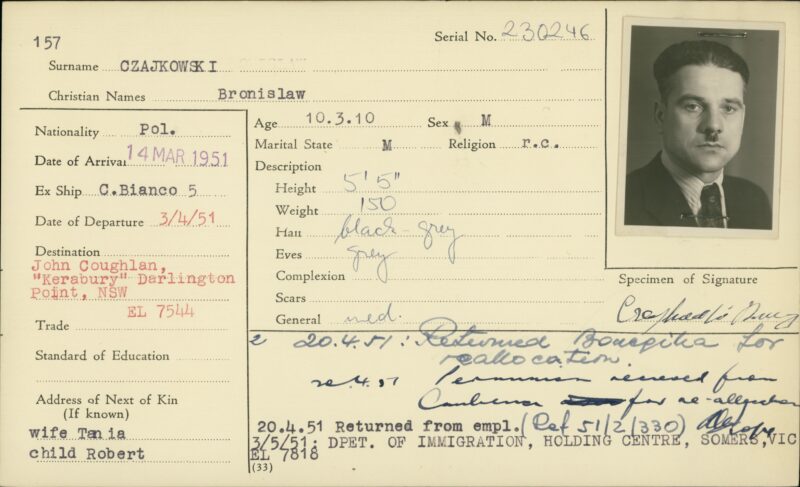 157
Serial No. 230246
Surname CZAJKOWSKI
Christian Names Bronislaw
Nationality Pol.
Date of Arrival 14 MAR 1951
Ex Ship C.Bianco 5
Date of Departure 3/4/51
Destination
John Coughlan,
"Kerabury" Darlington
Point, NSW
EL 7544
Trade
Standard of Education
Address of Next of Kin
(If known)
wife Tania
child Robert
Age 10.3.10 Sex M
Marital State M Religion r.c.
Description
Height 5'5"
Weight 150
Hair black-grey
Eyes grey
Complexion
Scars
General med.
Specimen of Signature
20.4.51: Returned Bonegilla for
reallocation.
Permission received from
Canberra for re-allocation
20.4.51 Returned from empl. (Ref 51/2/330)
3/5/51: DPET. OF IMMIGRATION, HOLDING CENTRE, SOMERS, VIC
EL 7818
(33)